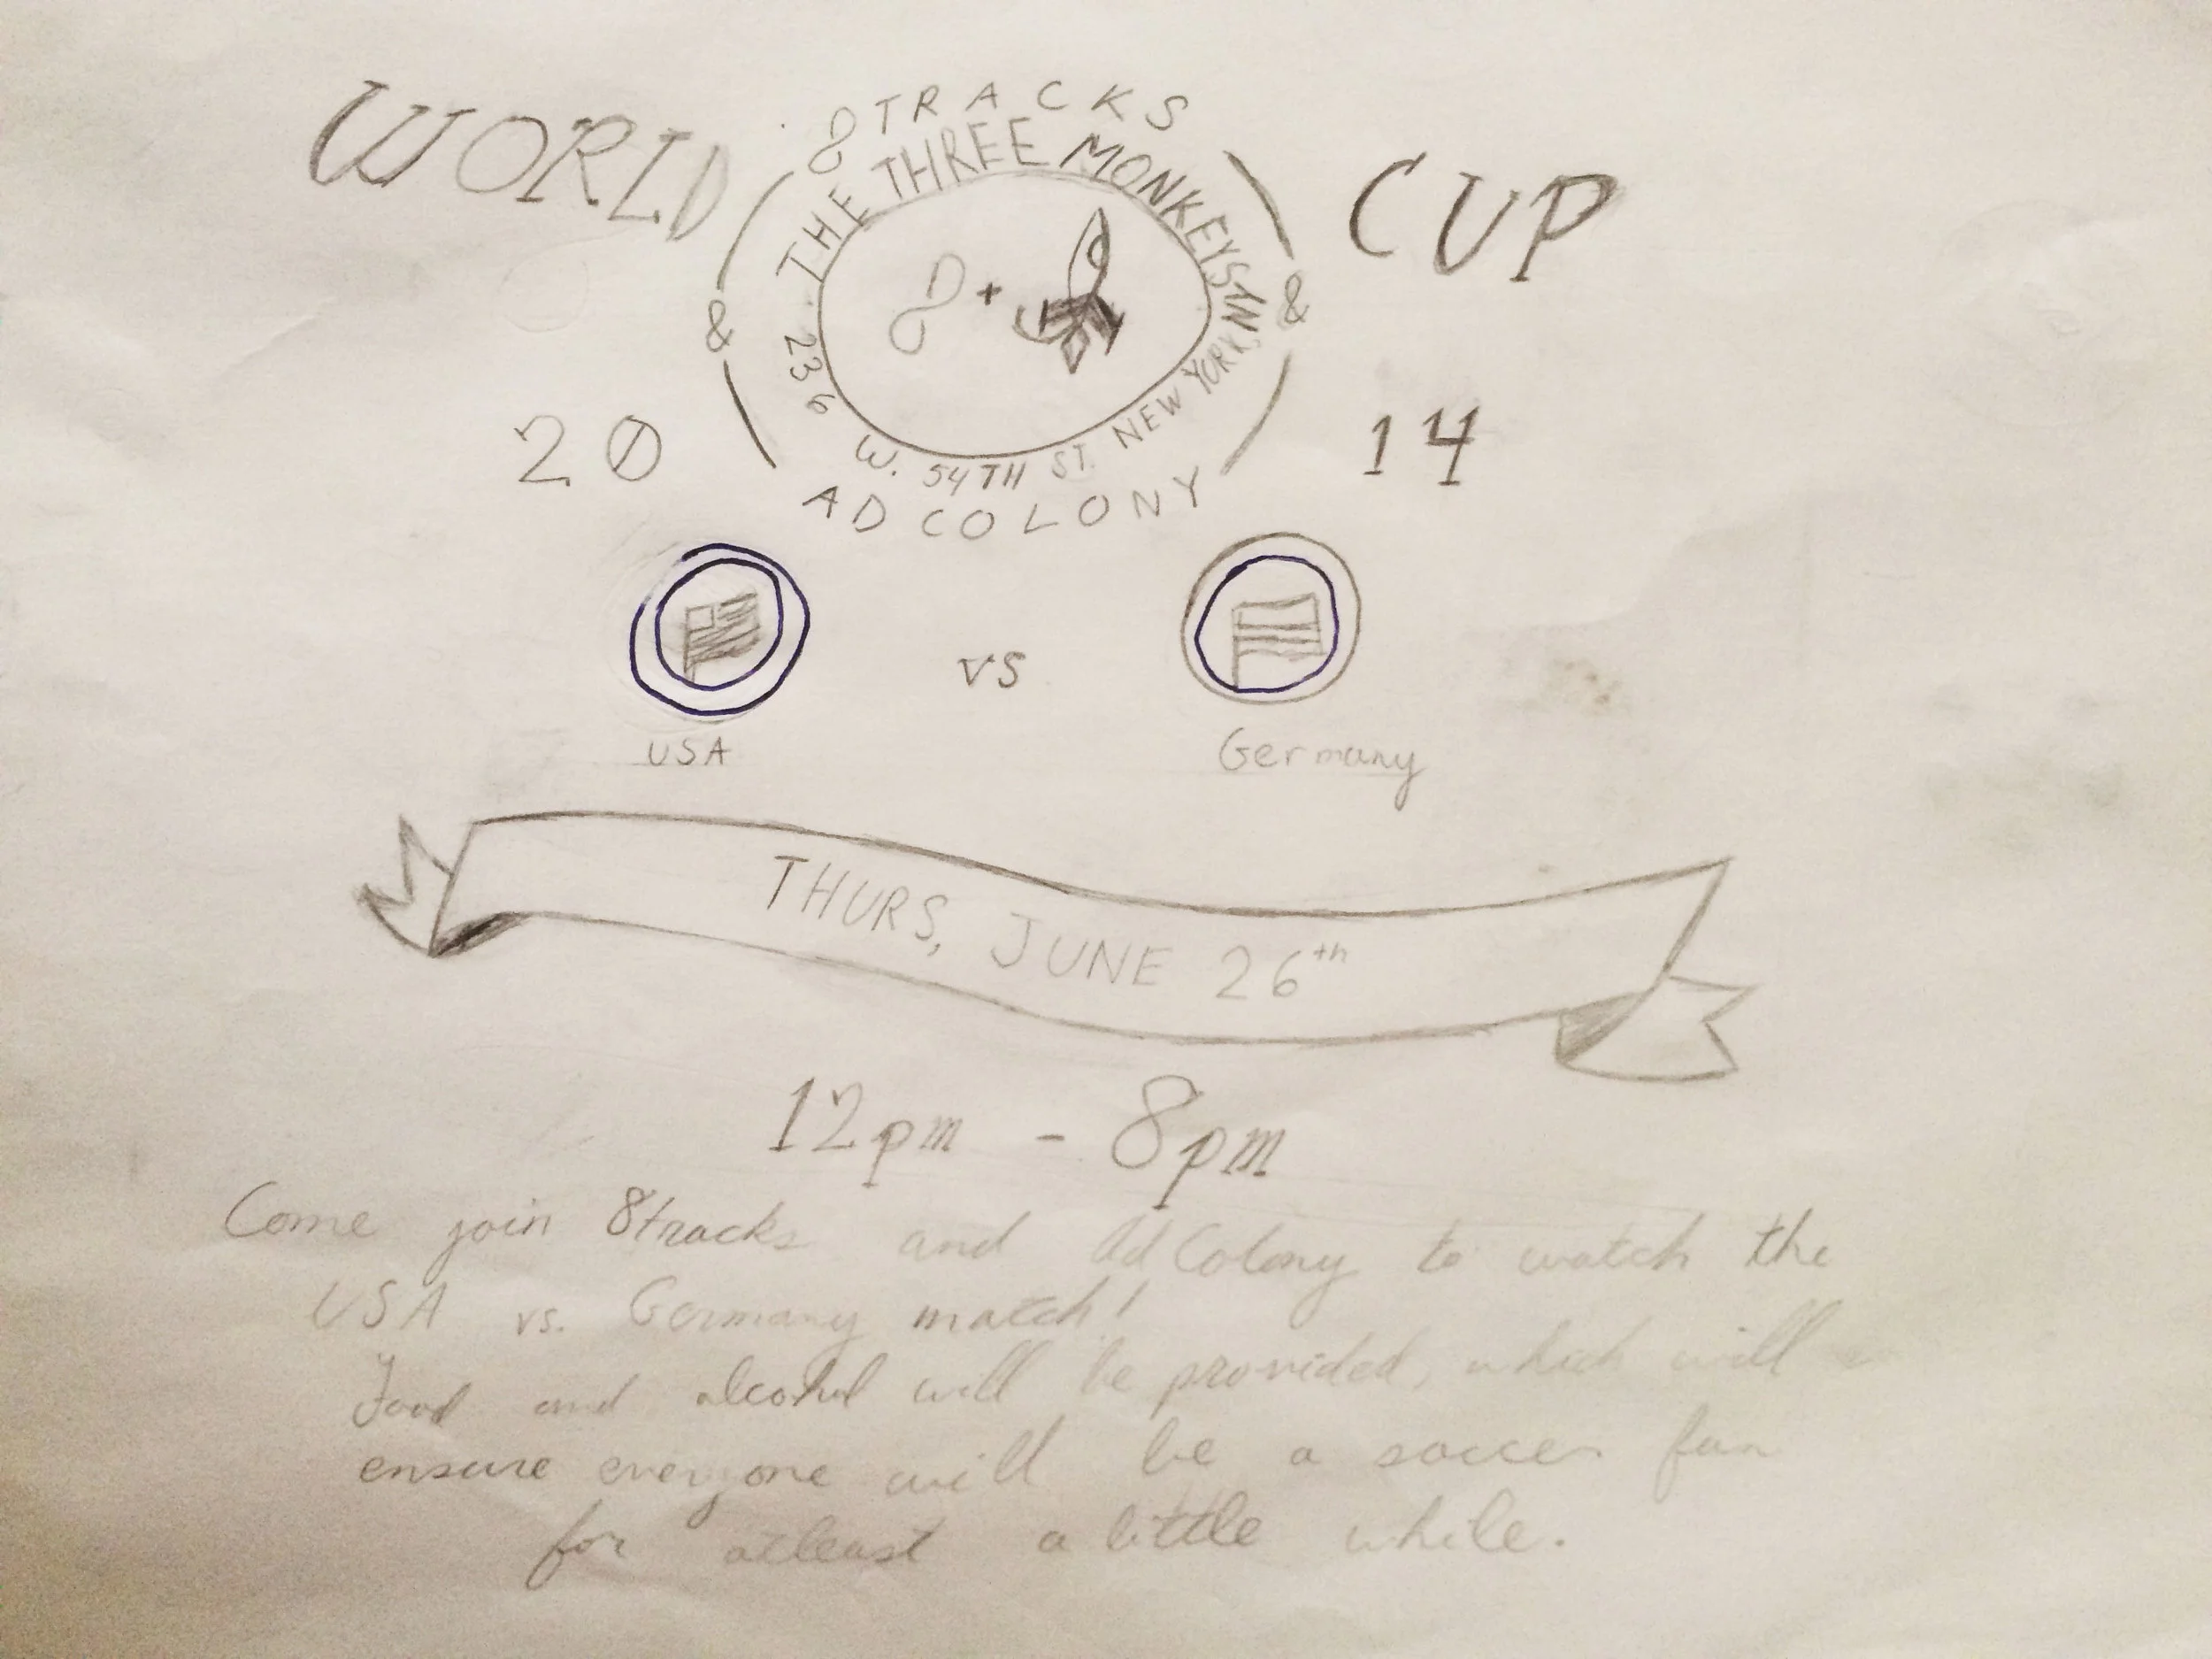 WORLD CUP
8TRACKS
THE THREE MONKEYS
236 W. 54TH ST. NEW YORK, NY
8 +
& &
ADCOLONY
20 14
VS
USA Germany
THURS, JUNE 26th
12pm - 8pm
Come join 8tracks and AdColony to watch the
USA vs. Germany match!
Food and alcohol will be provided, which will
ensure everyone will be a soccer fan
for atleast a little while.